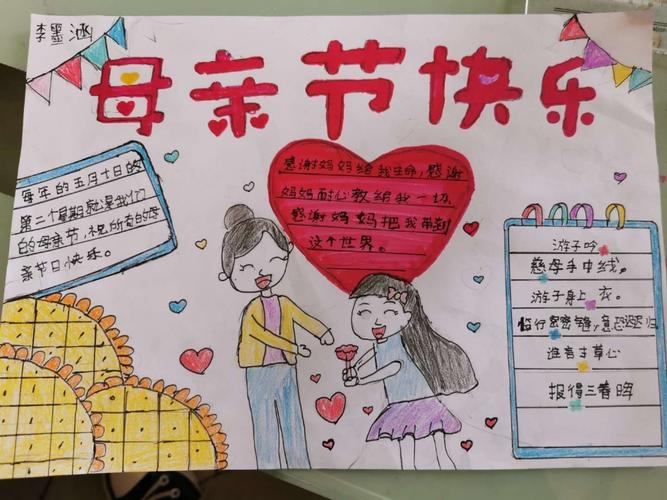 李墨涵
母亲节快乐
每年的五月十日的
第二个星期就是我们
的母亲节，祝所有的母
亲节日快乐。
感谢妈妈给我生命，感谢
妈妈耐心教给我一切
感谢妈妈把我带到
这个世界。
游子吟
慈母手中线，
游子身上衣。
临行密密缝，意恐迟迟归
谁言寸草心
报得三春晖